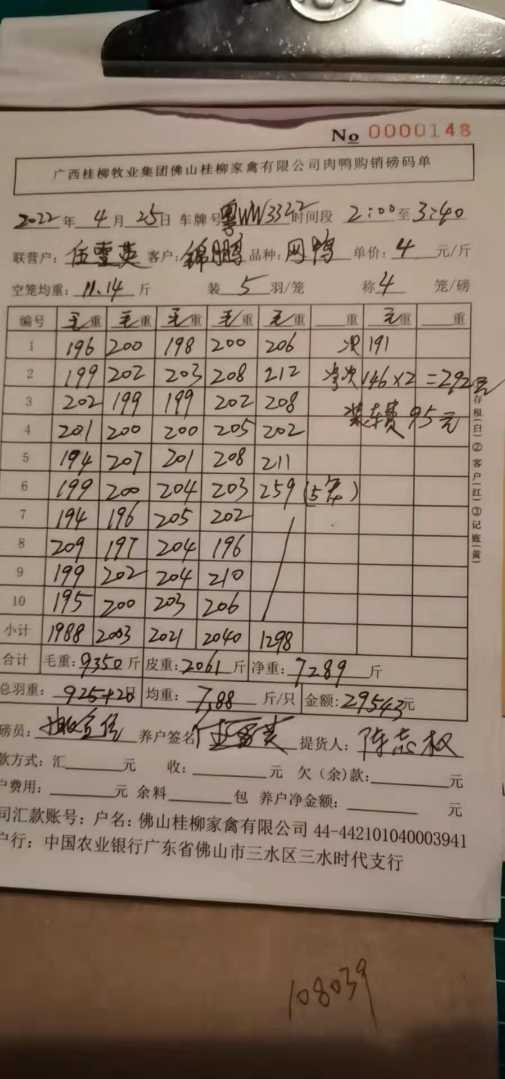 No 0000148
广西桂柳牧业集团佛山桂柳家禽有限公司肉鸭购销磅码单
2022年 4月 25日 车牌号粤WW3322时间段 2:00至3:40
联营户: 任雪英 客户: 锦鹏 品种: 网鸭 单价: 4 元/斤
空笼均重: 11.14 斤 装 5 羽/笼 称 4 笼/磅
编号 毛重 毛重 毛重 毛重 毛重 重 毛重 重
1 196 200 198 200 206 次 191
2 199 202 203 208 212 净次 146×2=292元
3 202 199 199 202 208 装车费 95元
4 201 200 200 205 202
5 194 207 201 208 211
6 199 200 204 203 259 (5笼)
7 194 196 205 202
8 209 197 204 196
9 199 202 204 210
10 195 200 203 206
小计 1988 2003 2021 2040 1298
合计 毛重: 9350 斤 皮重: 2061 斤 净重: 7289 斤
总羽重: 925+20 均重: 7.88 斤/只 金额: 29543元
磅员: 养户签名 任雪英 提货人: 陈志权
款方式: 汇 元 收: 元 欠(余)款: 元
户费用: 元 余料 包 养户净金额: 元
司汇款账号: 户名: 佛山桂柳家禽有限公司 44-442101040003941
户行: 中国农业银行广东省佛山市三水区三水时代支行
存根(白)②客户(红)③记账(黄)
108039